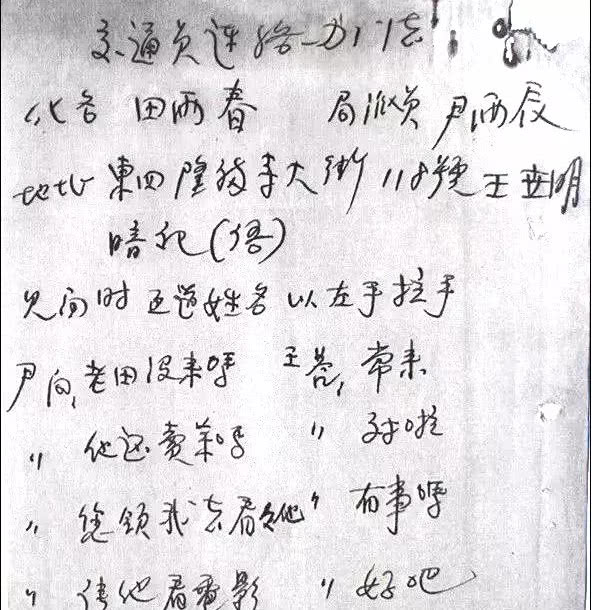 交通员连络办法
化名 田雨春 局派员 尹雨辰
地址 東四隆福寺大街118號王世明
暗记(语)
见面时互道姓名以左手拉手
尹问, 老田没来吗 王答, 常来
〃 他还卖菜吗 〃 对啦
〃 您领我去看看他 〃 有事吗
〃 请他看电影 〃 好吧